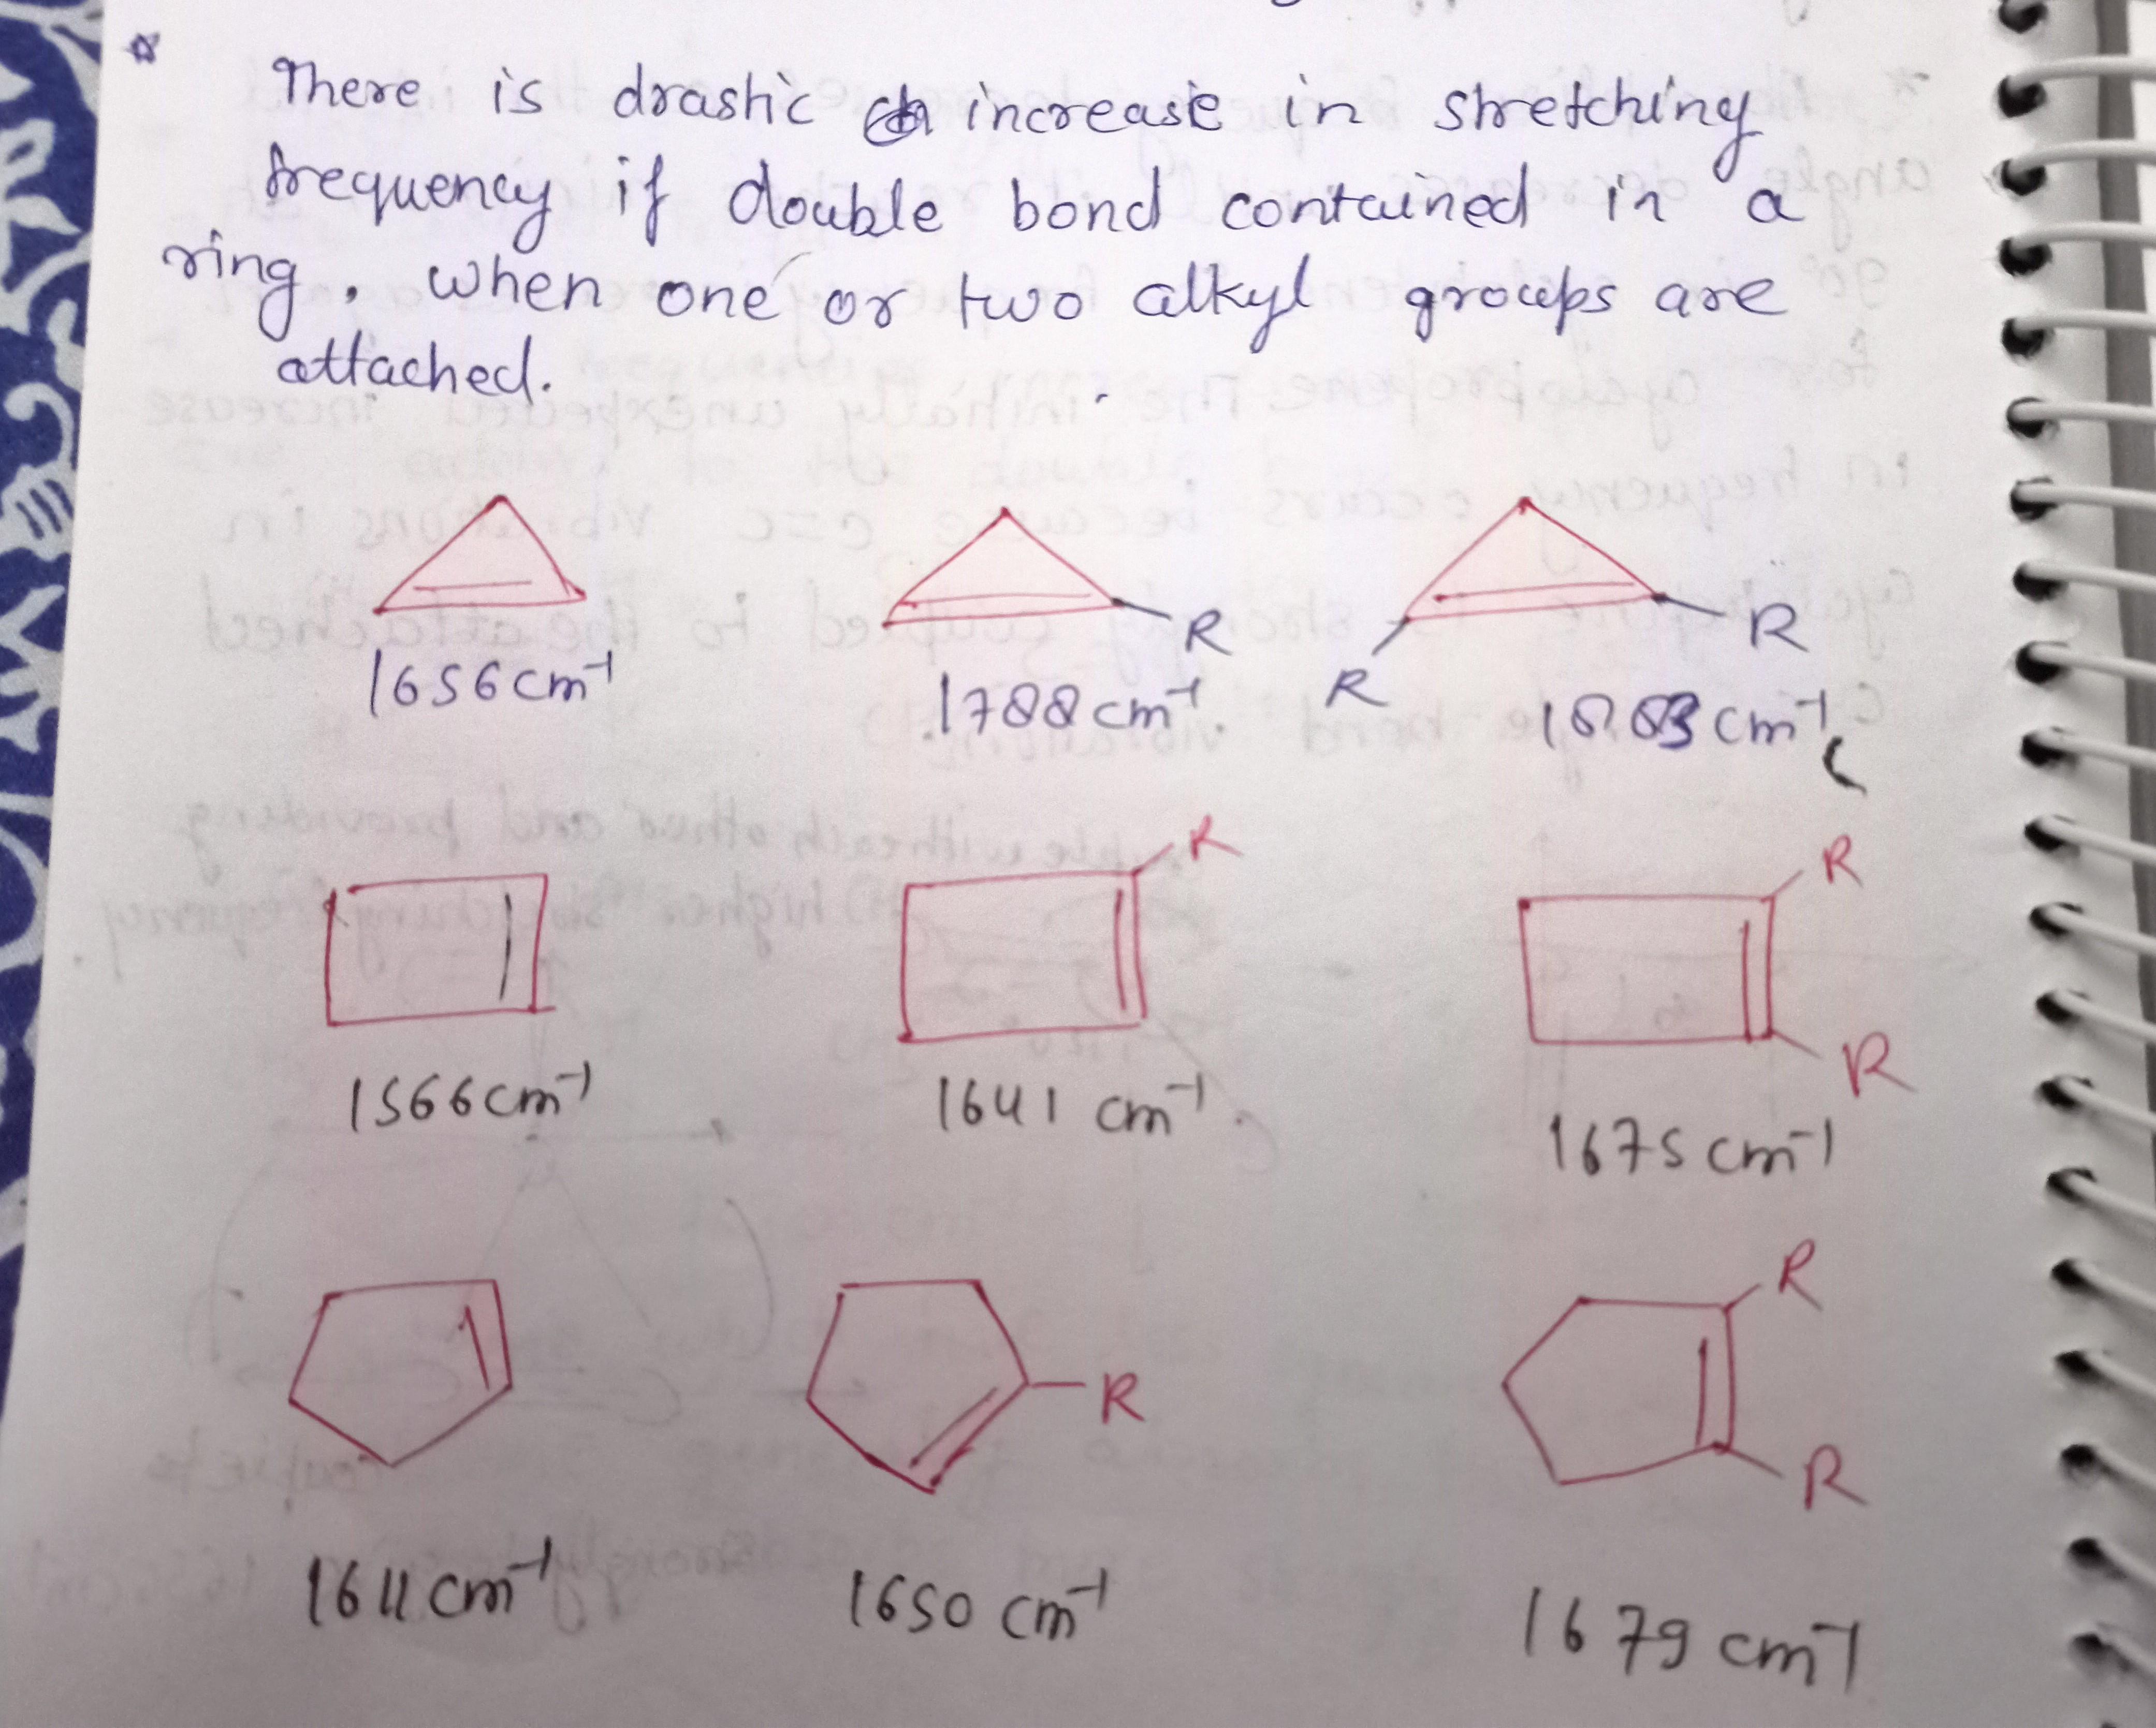 There is drastic increase in stretching
frequency if double bond contained in a
ring. when one or two alkyl groups are
attached.
R
R
R
1656 cm⁻¹
1788 cm⁻¹
cm⁻¹
R
R
R
1566 cm⁻¹
1641 cm⁻¹
1675 cm⁻¹
R
R
R
1611 cm⁻¹
1650 cm⁻¹
1679 cm⁻¹